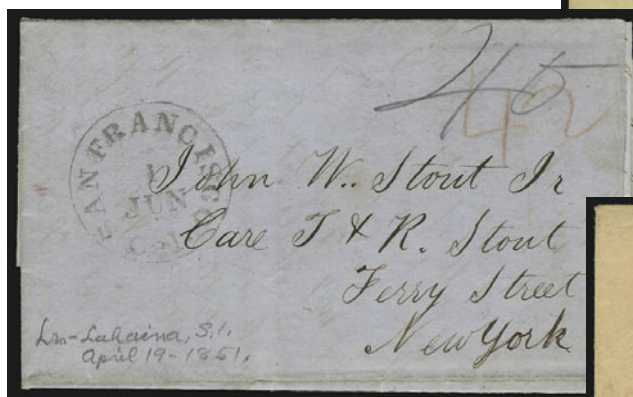 45
42
SAN FRANCISCO
1
JUN
Cal.
John W. Stout Jr
Care J & R. Stout
Ferry Street
New York
Ltr - Lahaina, S.I.
April 19 - 1851.